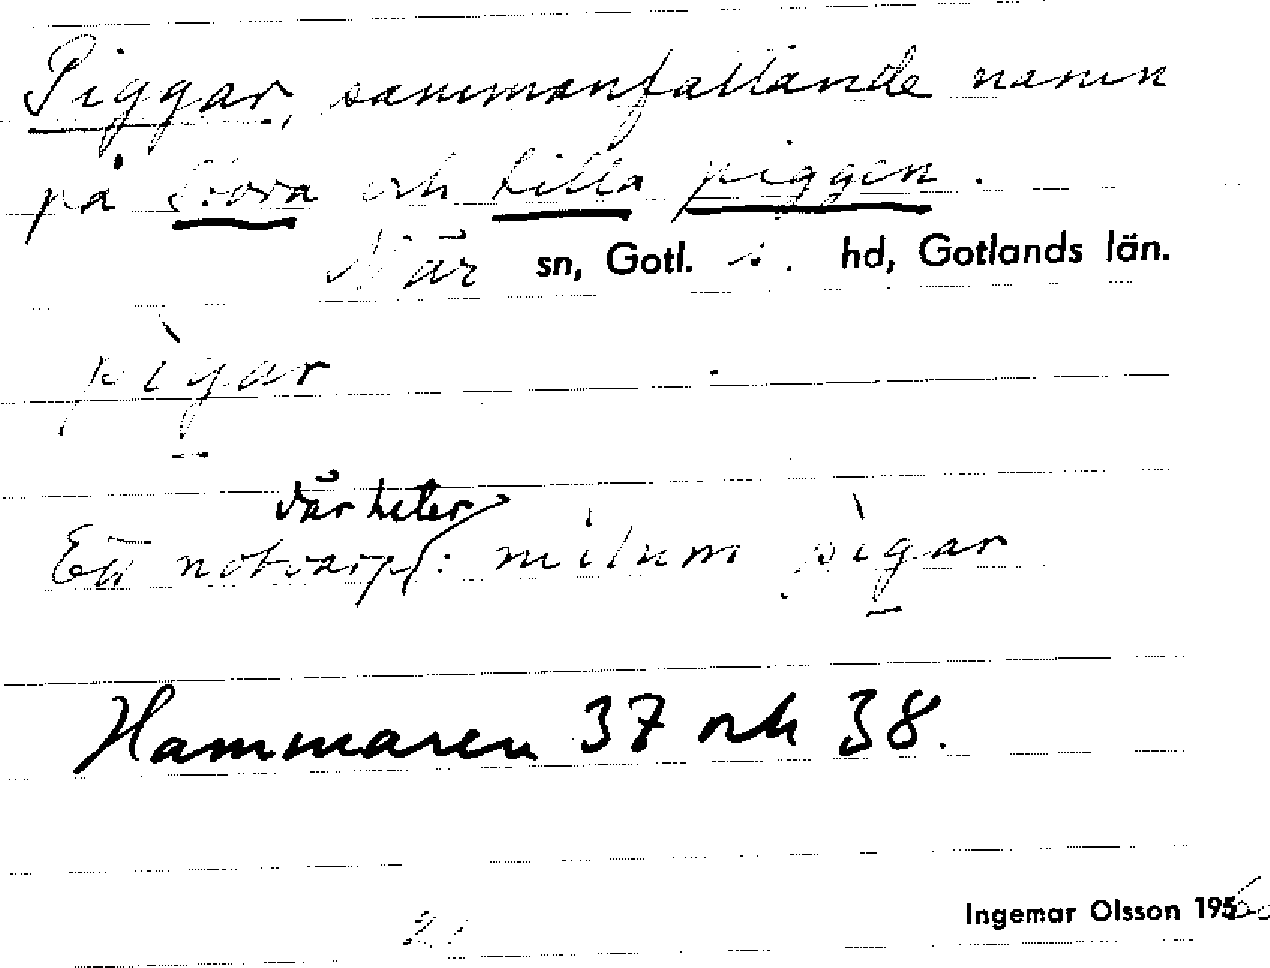 Piggar, sammanfallande namn
på Stora och Lilla piggen.
När sn, Gotl. s. hd, Gotlands län.
pìgar
där heter
Ett notvarp: milum pìgar
Hammaren 37 och 38.
Ingemar Olsson 1956